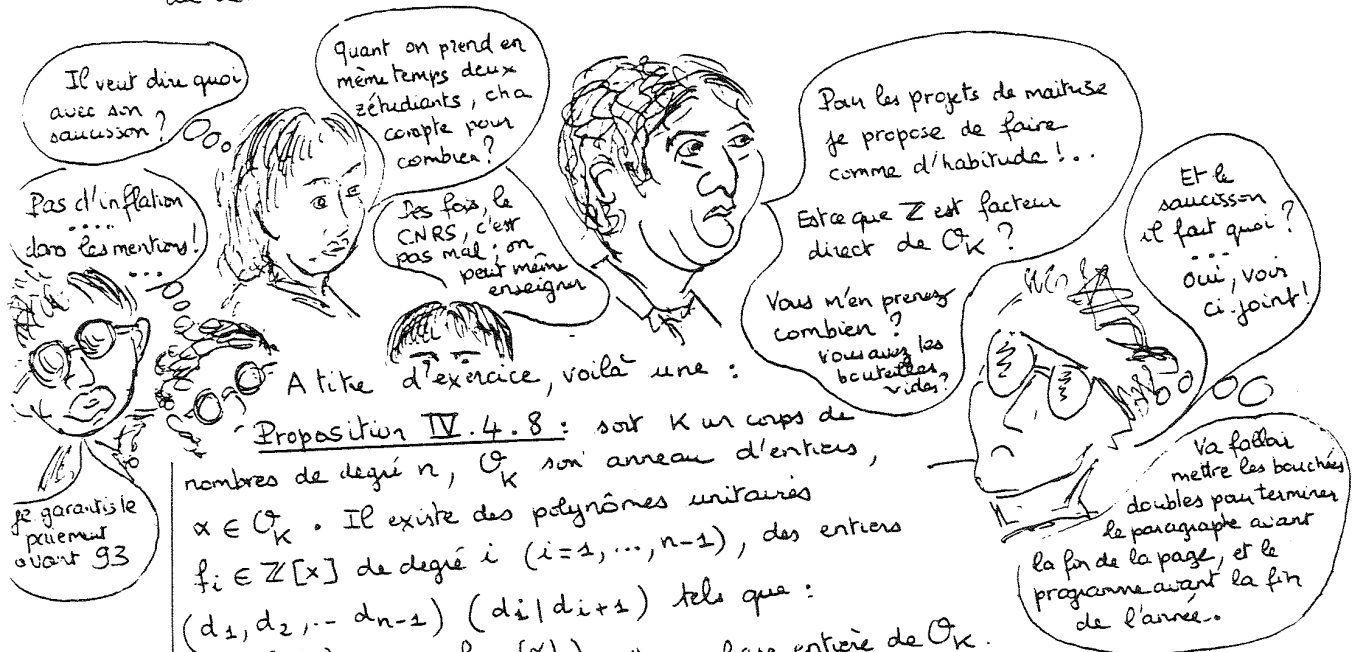 Il veut dire quoi
avec son
saucisson ?
quant on prend en
même temps deux
zétudiants, cha
compte pour
combien ?
Pas d'inflation
....
dans les mentions !
...
Des fois, le
CNRS, c'est
pas mal ; on
peut même
enseigner
Pour les projets de maîtrise
je propose de faire
comme d'habitude !...
Est ce que ℤ est facteur
direct de O_K ?
Vous m'en prenez
combien ?
vous avez les
bouteilles
vides ?
Et le
saucisson
il fait quoi ?
...
oui, voir
ci-joint !
je garantis le
paiement
avant 93
Va falloir
mettre les bouchées
doubles pour terminer
le paragraphe avant
la fin de la page, et le
programme avant la fin
de l'année..
A titre d'exercice, voilà une :
Proposition IV.4.8 : soit K un corps de
nombres de degré n, O_K son anneau d'entiers,
α ∈ O_K . Il existe des polynômes unitaires
f_i ∈ ℤ[x] de degré i (i=1,...,n-1), des entiers
(d_1, d_2, ... d_{n-1}) (d_i | d_{i+1}) tels que :
base entière de O_K.